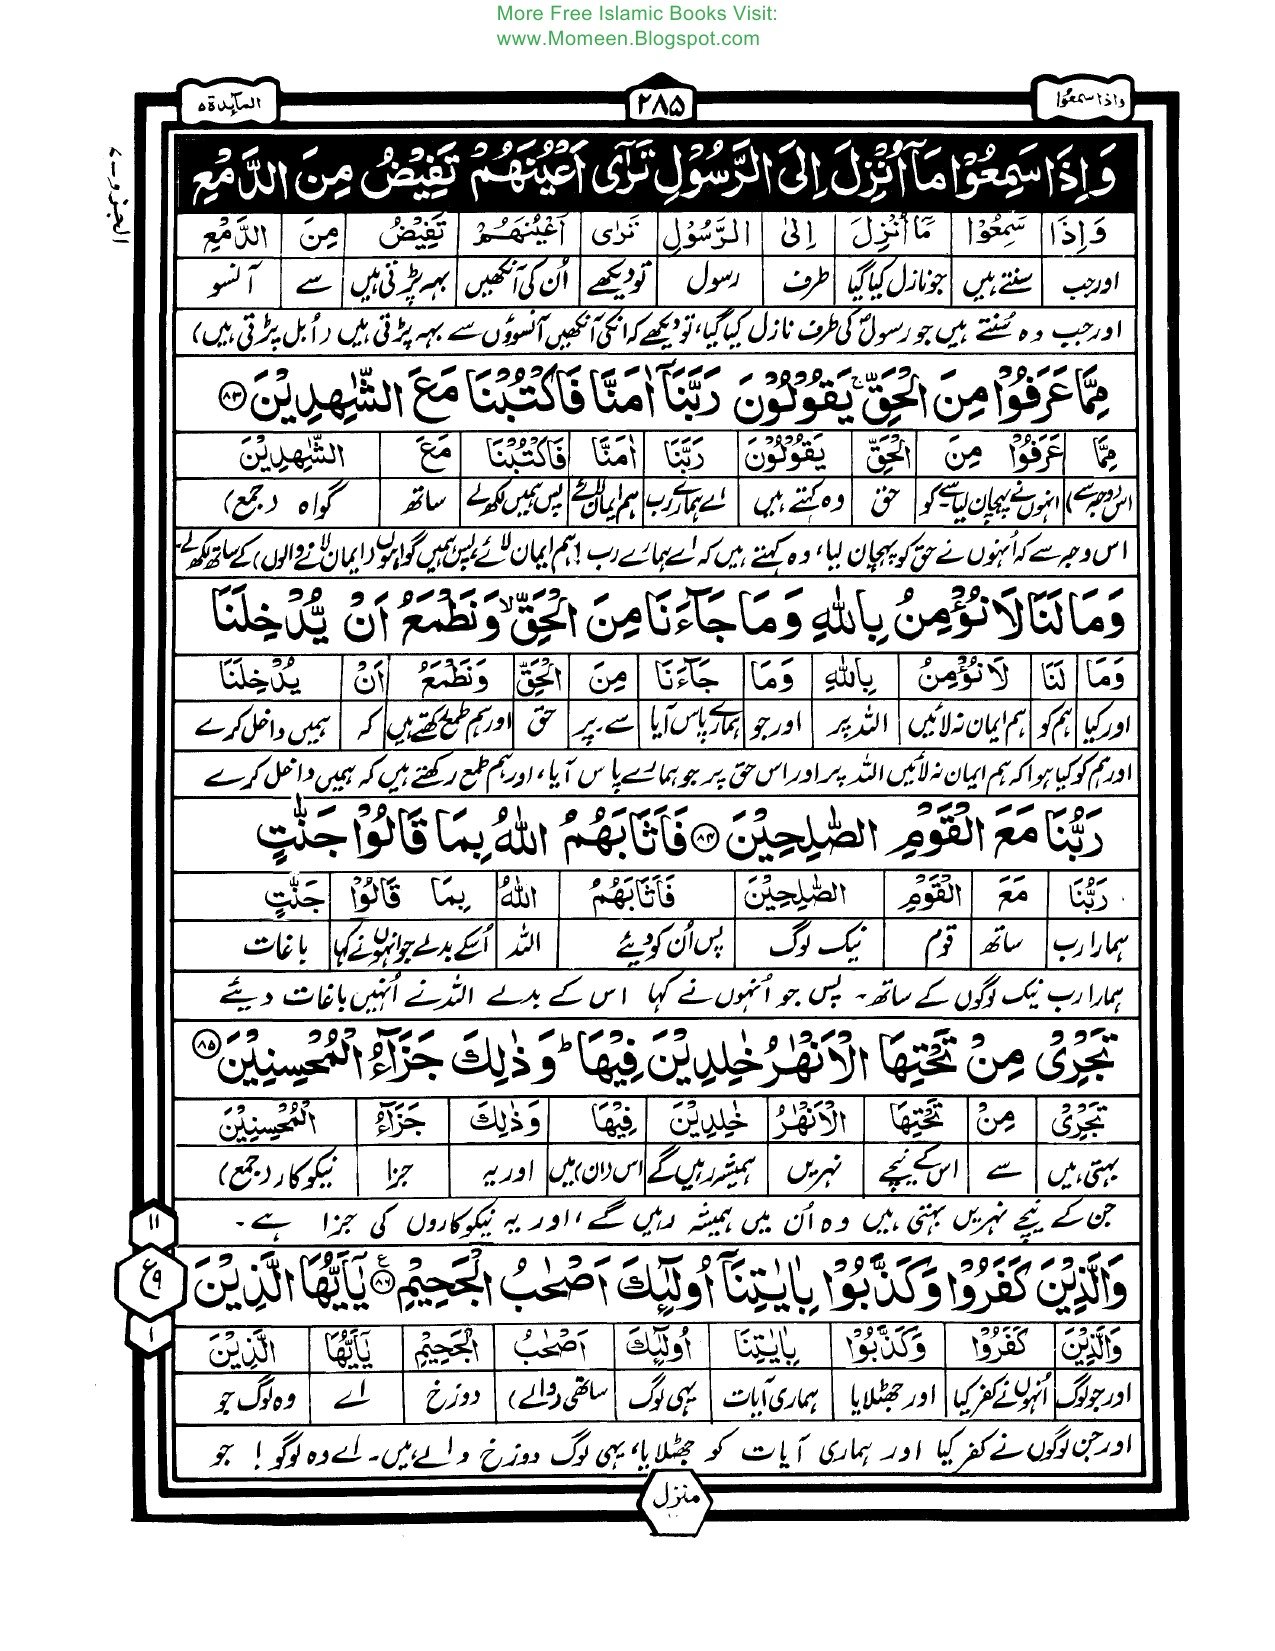 More Free Islamic Books Visit:
www.Momeen.Blogspot.com
واذا سمعوا ٢٨٥ المآئدة ٥
وَاِذَا سَمِعُوْا مَآ اُنْزِلَ اِلَى الرَّسُوْلِ تَرٰٓى اَعْيُنَهُمْ تَفِيْضُ مِنَ الدَّمْعِ
وَاِذَا سَمِعُوْا مَآ اُنْزِلَ اِلَى الرَّسُوْلِ تَرٰٓى اَعْيُنَهُمْ تَفِيْضُ مِنَ الدَّمْعِ
اورجب سنتے ہیں جو نازل کیا گیا طرف رسول تو دیکھے اُن کی آنکھیں بہہ پڑتی ہیں سے آنسو
اور جب وہ سُنتے ہیں جو رسولؐ کی طرف نازل کیا گیا، تو دیکھے کہ انکی آنکھیں آنسوؤں سے بہہ پڑتی ہیں (اُبل پڑتی ہیں)
مِمَّا عَرَفُوْا مِنَ الْحَقِّ ۚ يَقُوْلُوْنَ رَبَّنَآ اٰمَنَّا فَاكْتُبْنَا مَعَ الشّٰهِدِيْنَ ﴿٨٣﴾
مِمَّا عَرَفُوْا مِنَ الْحَقِّ يَقُوْلُوْنَ رَبَّنَا اٰمَنَّا فَاكْتُبْنَا مَعَ الشّٰهِدِيْنَ
اس (وجہ سے) انہوں نے پہچان لیا سے۔کو حق وہ کہتے ہیں اے ہمارے رب ہم ایمان لائے پس ہمیں لکھ لے ساتھ گواہ (جمع)
اس وجہ سے کہ اُنہوں نے حق کو پہچان لیا، وہ کہتے ہیں کہ اے ہمارے رب! ہم ایمان لائے، پس ہمیں گواہوں (ایمان لانے والوں) کے ساتھ لکھ لے۔
وَمَا لَنَا لَا نُؤْمِنُ بِاللّٰهِ وَمَا جَآءَنَا مِنَ الْحَقِّ ۙ وَنَطْمَعُ اَنْ يُّدْخِلَنَا
وَمَا لَنَا لَا نُؤْمِنُ بِاللّٰهِ وَمَا جَآءَنَا مِنَ الْحَقِّ وَنَطْمَعُ اَنْ يُدْخِلَنَا
اور کیا ہم کو ہم ایمان نہ لائیں اللہ پر اور جو ہمارے پاس آیا سے۔پر حق اور ہم طمع رکھتے ہیں کہ ہمیں داخل کرے
اور ہم کو کیا ہوا کہ ہم ایمان نہ لائیں اللہ پر اور اس حق پر جو ہمارے پاس آیا، اور ہم طمع رکھتے ہیں کہ ہمیں داخل کرے
رَبُّنَا مَعَ الْقَوْمِ الصّٰلِحِيْنَ ﴿٨٤﴾ فَاَثَابَهُمُ اللّٰهُ بِمَا قَالُوْا جَنّٰتٍ
رَبُّنَا مَعَ الْقَوْمِ الصّٰلِحِيْنَ فَاَثَابَهُمُ اللّٰهُ بِمَا قَالُوْا جَنّٰتٍ
ہمارا رب ساتھ قوم نیک لوگ پس اُن کو دیئے اللہ اُسکے بدلے جو انہوں نے کہا باغات
ہمارا رب نیک لوگوں کے ساتھ۔ پس جو اُنہوں نے کہا اس کے بدلے اللہ نے اُنہیں باغات دیئے
تَجْرِيْ مِنْ تَحْتِهَا الْاَنْهٰرُ خٰلِدِيْنَ فِيْهَا ؕ وَذٰلِكَ جَزَآءُ الْمُحْسِنِيْنَ ﴿٨٥﴾
تَجْرِيْ مِنْ تَحْتِهَا الْاَنْهٰرُ خٰلِدِيْنَ فِيْهَا وَذٰلِكَ جَزَآءُ الْمُحْسِنِيْنَ
بہتی ہیں سے اس کے نیچے نہریں ہمیشہ رہیں گے اس (ان) میں اور یہ جزا نیکوکار (جمع)
جن کے نیچے نہریں بہتی ہیں وہ اُن میں ہمیشہ رہیں گے، اور یہ نیکوکاروں کی جزا ہے۔
وَالَّذِيْنَ كَفَرُوْا وَكَذَّبُوْا بِاٰيٰتِنَآ اُولٰٓئِكَ اَصْحٰبُ الْجَحِيْمِ ﴿٨٦﴾ ع يٰٓاَيُّهَا الَّذِيْنَ
وَالَّذِيْنَ كَفَرُوْا وَكَذَّبُوْا بِاٰيٰتِنَا اُولٰٓئِكَ اَصْحٰبُ الْجَحِيْمِ يٰٓاَيُّهَا الَّذِيْنَ
اور جو لوگ اُنہوں نے کفر کیا اور جھٹلایا ہماری آیات یہی لوگ ساتھی (والے) دوزخ اے وہ لوگ جو
اور جن لوگوں نے کفر کیا اور ہماری آیات کو جھٹلایا، یہی لوگ دوزخ والے ہیں۔ اے وہ لوگو! جو
منزل
الجزو ۔ ۷
١١
ع ٩
١